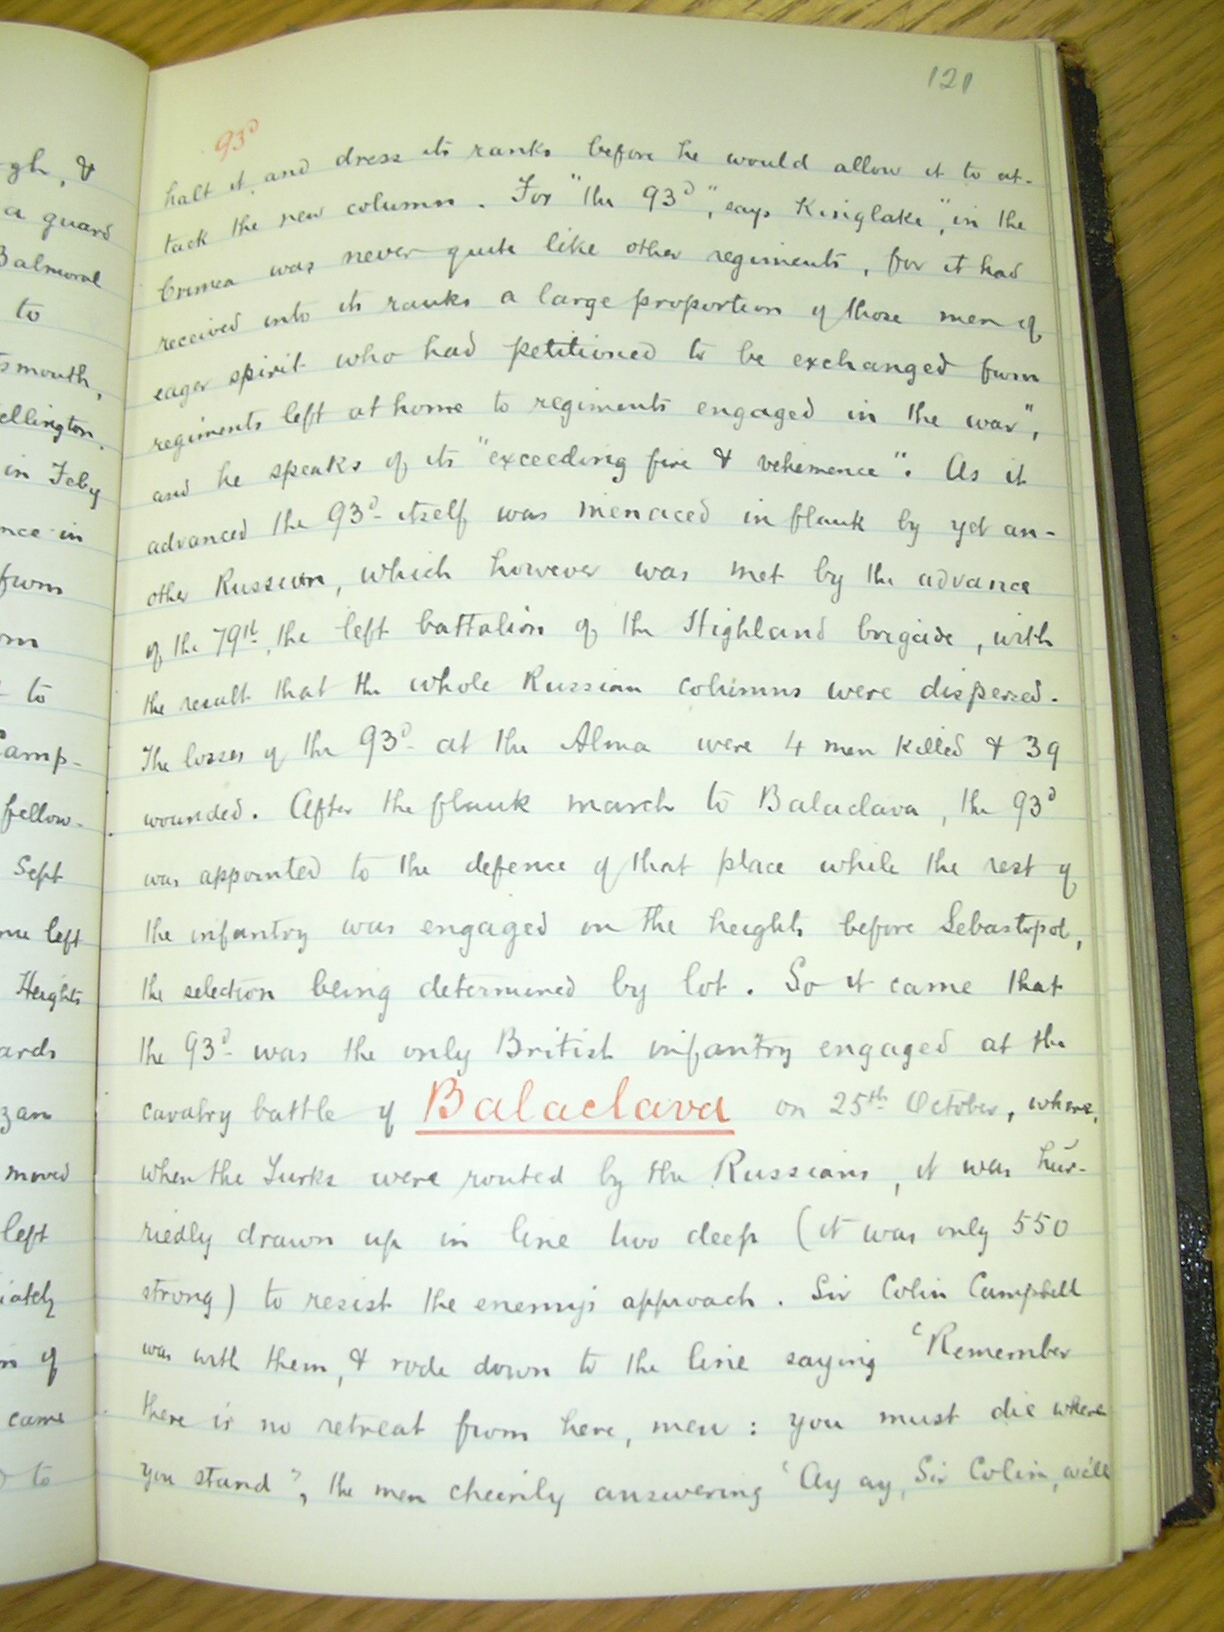 121
93d
halt it and dress its ranks before he would allow it to at-
tack the new column. For "the 93d", says Kinglake, "in the
Crimea was never quite like other regiments, for it had
received into its ranks a large proportion of those men of
eager spirit who had petitioned to be exchanged from
regiments left at home to regiments engaged in the war",
and he speaks of its "exceeding fire & vehemence". As it
advanced the 93d itself was menaced in flank by yet an-
other Russian, which however was met by the advance
of the 79th, the left battalion of the Highland brigade, with
the result that the whole Russian columns were dispersed.
The losses of the 93d at the Alma were 4 men killed & 39
wounded. After the flank march to Balaclava, the 93d
was appointed to the defence of that place while the rest of
the infantry was engaged on the heights before Sebastopol,
the selection being determined by lot. So it came that
the 93d was the only British infantry engaged at the
cavalry battle of Balaclava on 25th October, where,
when the Turks were routed by the Russians, it was hur-
riedly drawn up in line two deep (it was only 550
strong) to resist the enemy's approach. Sir Colin Campbell
was with them, & rode down to the line saying 'Remember
there is no retreat from here, men: you must die where
you stand", the men cheerily answering 'Ay ay, Sir Colin, we'll
gh, &
a guard
Balmoral
to
smouth,
ellington.
in Feby
nce in
from
om
to
Camp-
fellow-
Sept
me left
Heights
ards
zan
moved
left
iately
n of
came
to